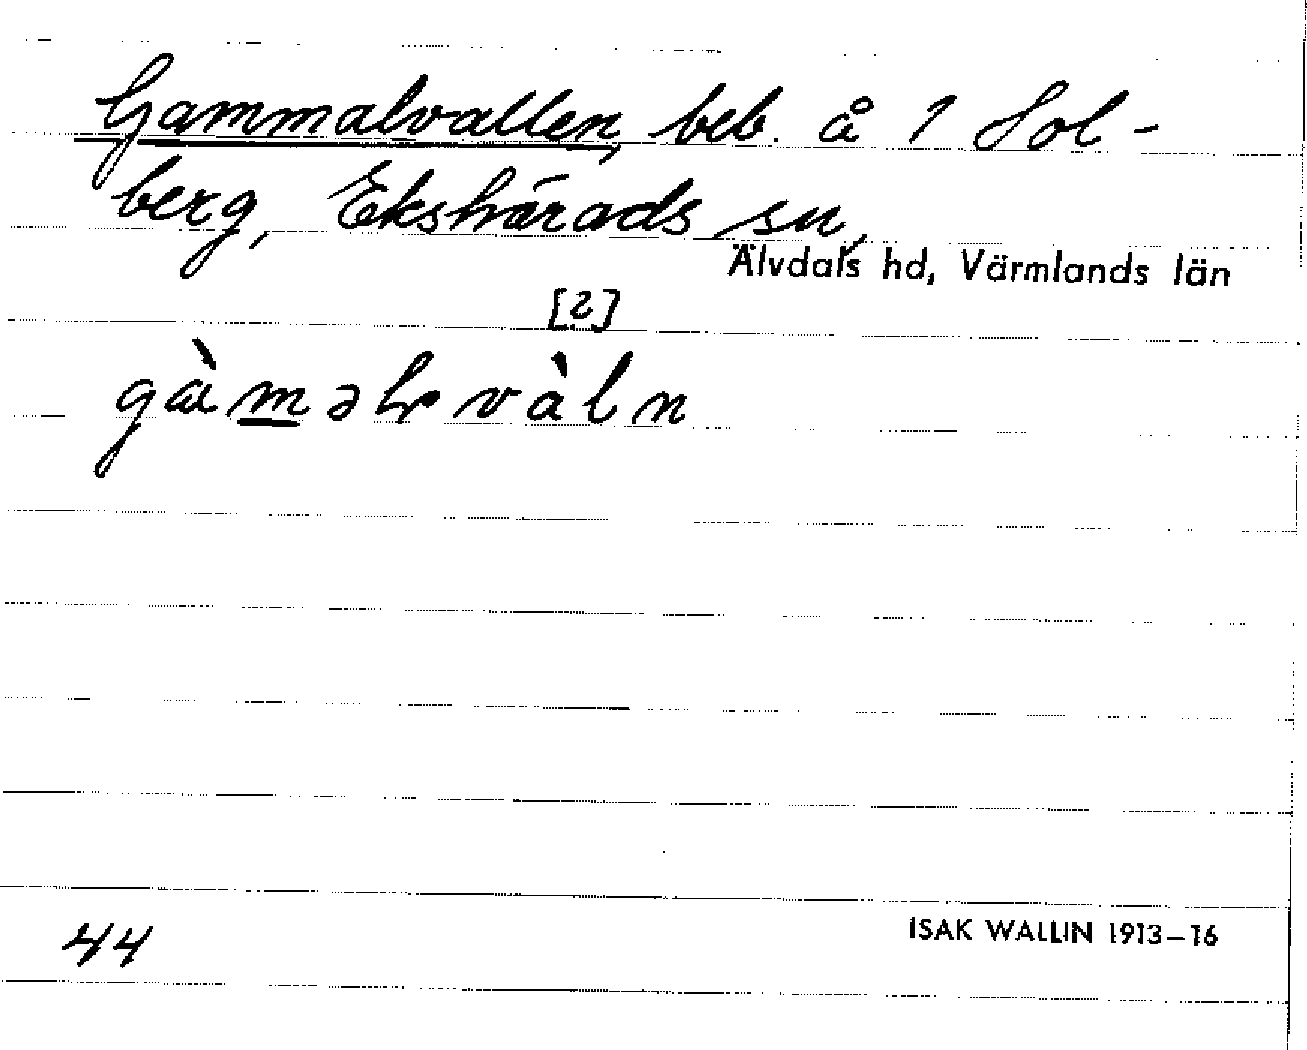 Gammalvallen, beb. å 1 Sol-
berg, Ekshärads sn,
Älvdals hd, Värmlands län
[2]
gàməlvàln
44
ISAK WALLIN 1913–16